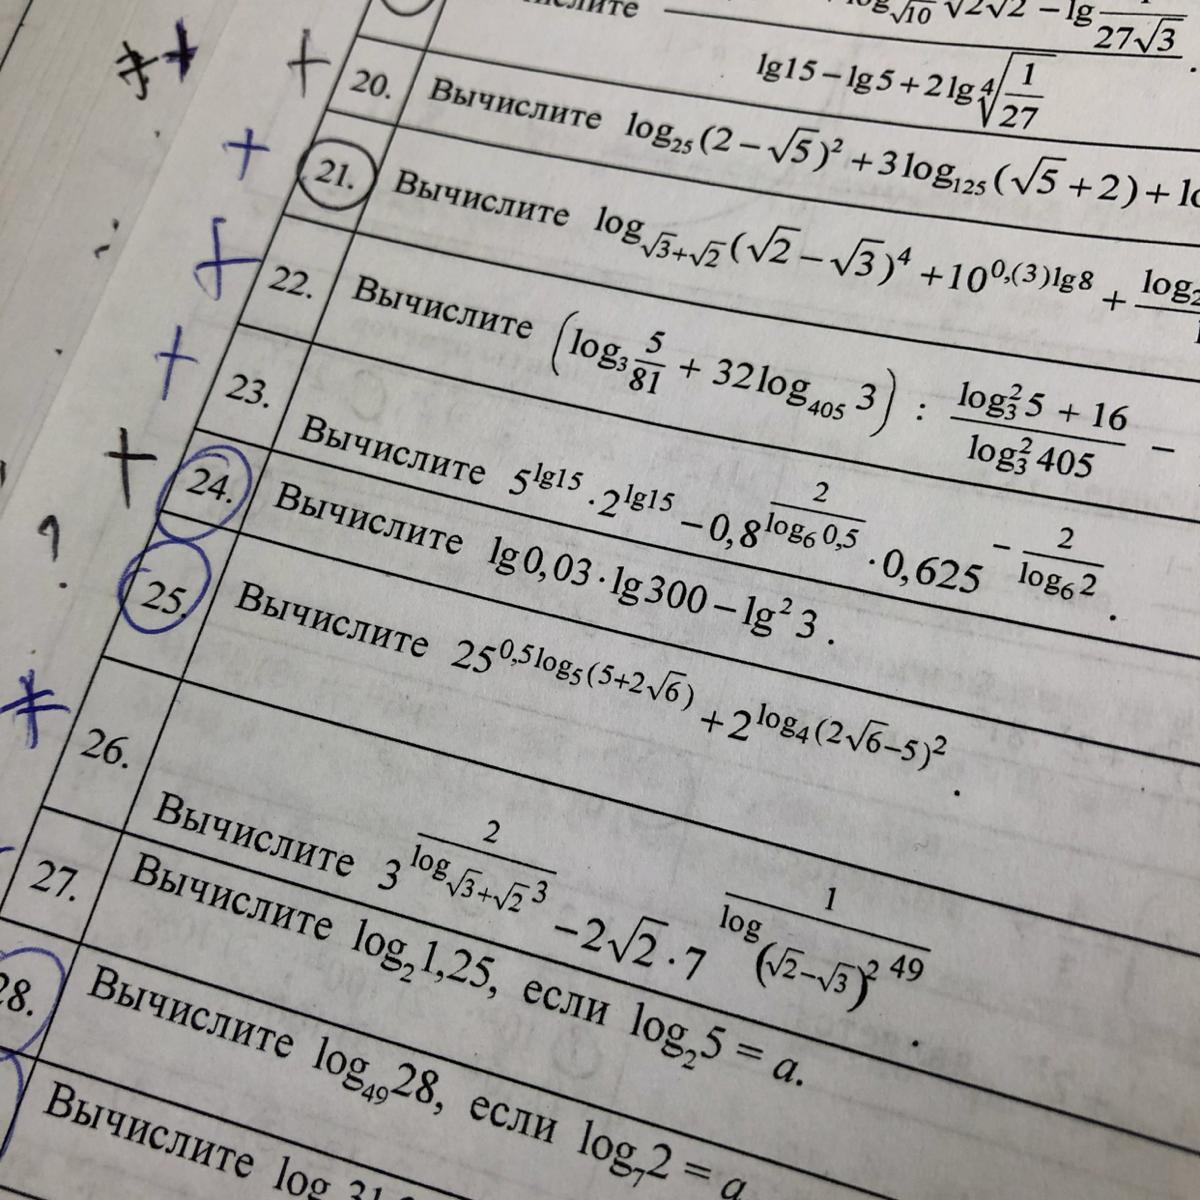 log√10 √2√2 − lg 1/(27√3) .
lg15 − lg5 + 2lg ⁴√(1/27)
20. Вычислите log₂₅(2 − √5)² + 3log₁₂₅(√5 + 2) +
21. Вычислите log_{√3+√2}(√2 − √3)⁴ + 10^{0,(3)lg8} + log₂
22. Вычислите (log₃ 5/81 + 32log₄₀₅ 3) : (log₃² 5 + 16)/(log₃² 405) −
23. Вычислите 5^{lg15} · 2^{lg15} − 0,8^{2/(log₆ 0,5)} · 0,625^{− 2/(log₆ 2)} .
24. Вычислите lg0,03 · lg300 − lg² 3 .
25. Вычислите 25^{0,5log₅(5+2√6)} + 2^{log₄(2√6−5)²} .
26. Вычислите 3^{2/(log_{√3+√2} 3)} − 2√2 · 7^{1/(log_{(√2−√3)²} 49)} .
27. Вычислите log₂1,25, если log₂5 = a.
28. Вычислите log₄₉28, если log₇2 = a
Вычислите log 31